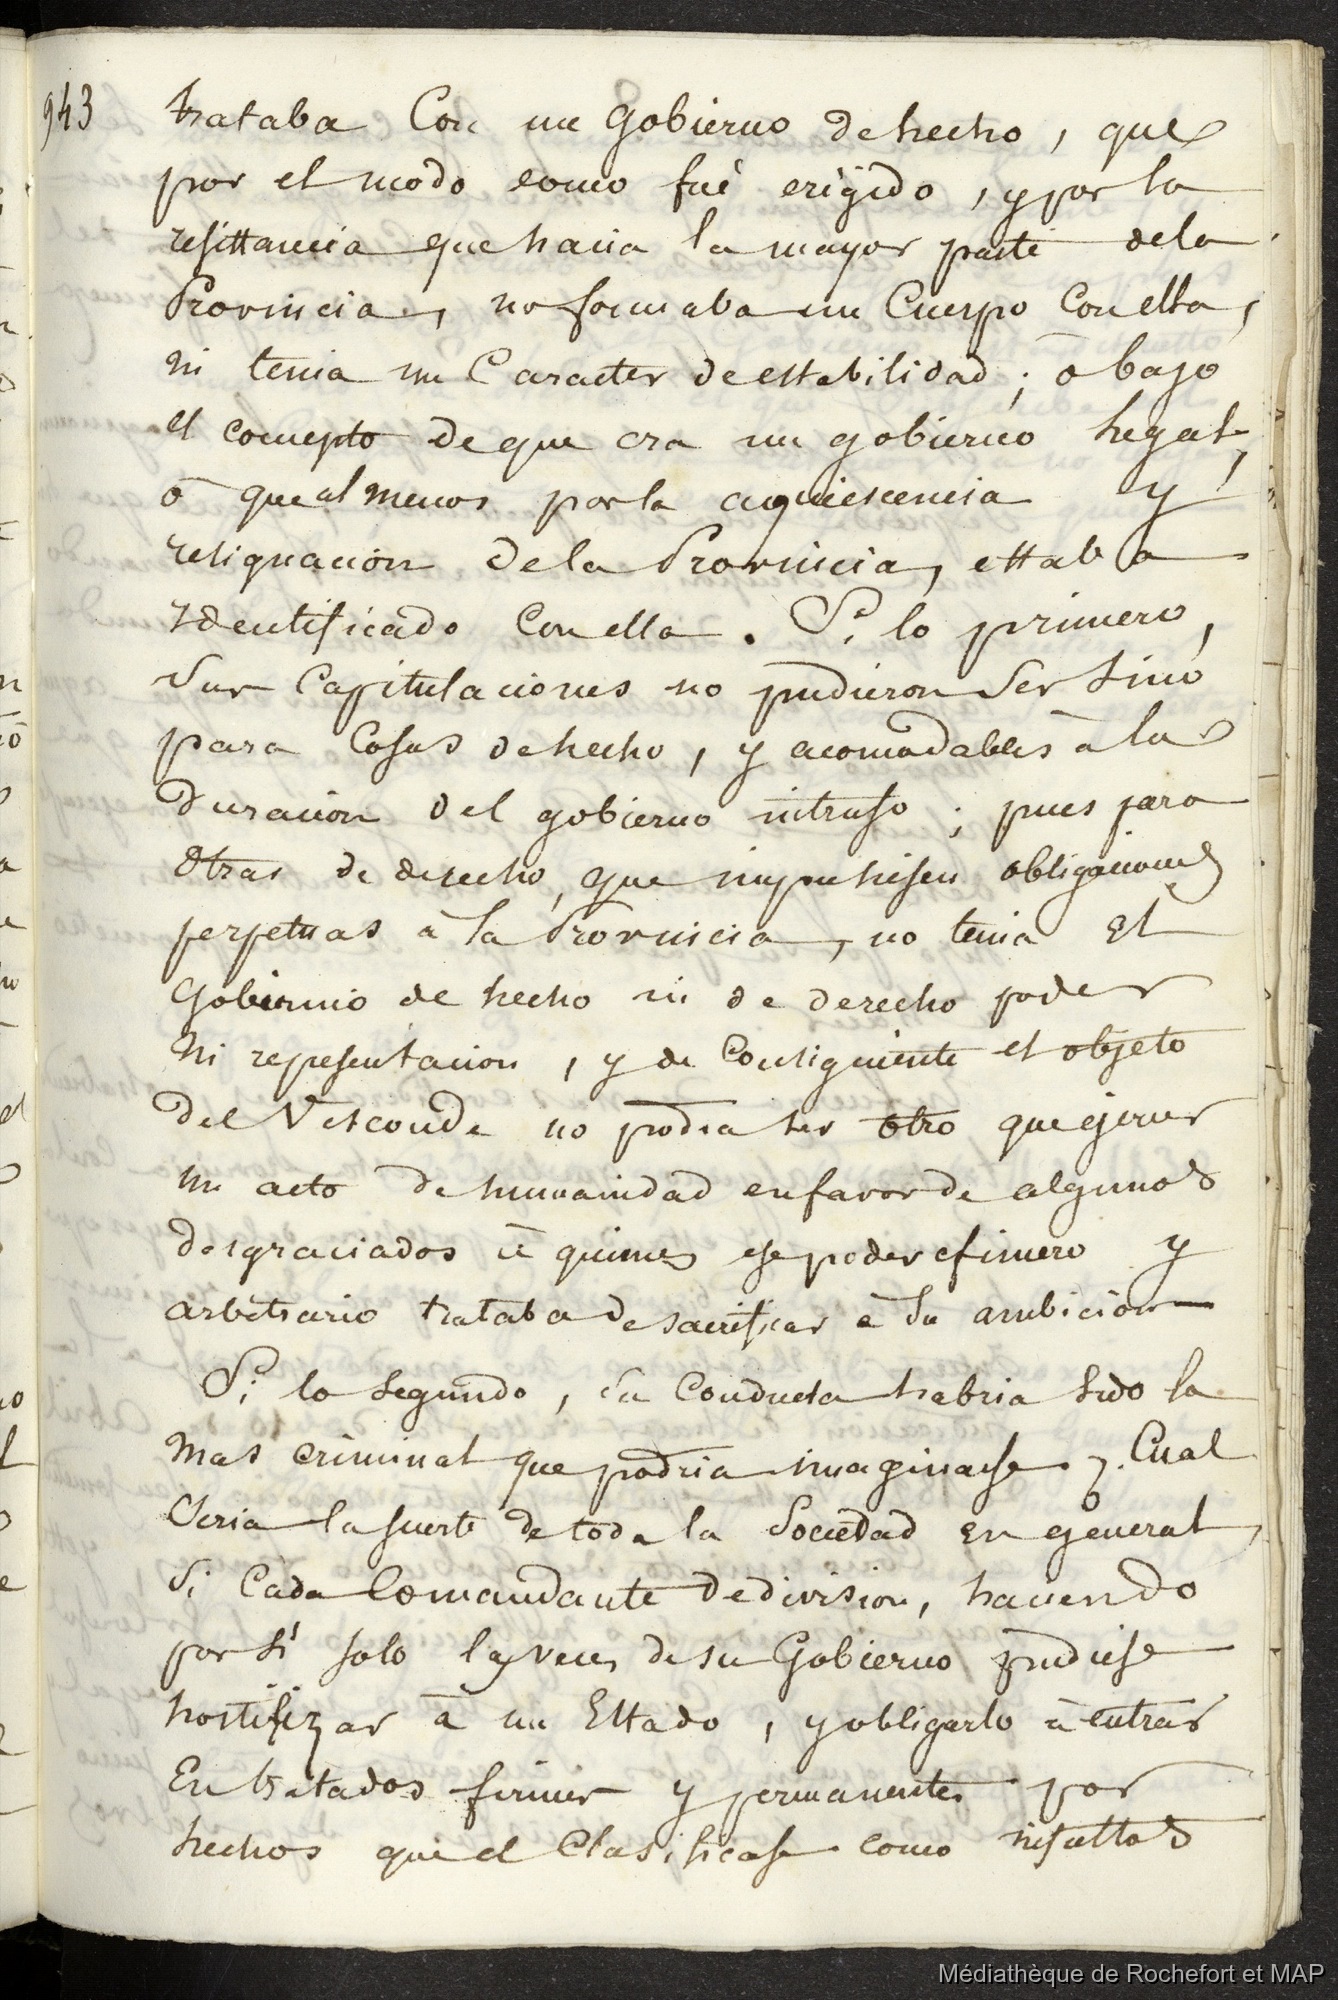 943
trataba Con un Gobierno de hecho, que
por el modo como fué erigido, y por la
resistancia que hacia la mayor parte dela
Provincia, no formaba un Cuerpo Con ella,
ni tenia un Caracter de estabilidad; ò bajo
el concepto de que era un gobierno legal,
ò que al menos por la aquiescencia y
resignacion de la Provincia, estaba
identificado Con ella. Si lo primero,
Sus Capitulaciones no pudieron Ser Sinó
para Cosas de hecho, y acomodables à la
duracion del gobierno intruso; pues para
otras de derecho, que impuhisen obligaciones
perpetuas à la Provincia, no tenia El
Gobierno de hecho ni de derecho poder
Ni representacion, y de Consiguiente el objeto
del Vesconde no podia ser otro que ejercer
un acto de humanidad en favor de algunos
desgraciados à quienes ese poder efimero y
arbitrario trataba de sacrificar à Su ambicion
Si lo Segundo, Su Conducta habria Sido la
Mas criminal que podria imaginarse. Cual
Seria la suerte de toda la Sociedad en general,
Si Cada Comandante de division, haciendo
por Sí solo las veces de su Gobierno pudiese
hostilizar à un Estado, y obligarlo à entrar
En tratados firmes y permanentes por
hechos que el Clasificase como insultos
Médiathèque de Rochefort et MAP